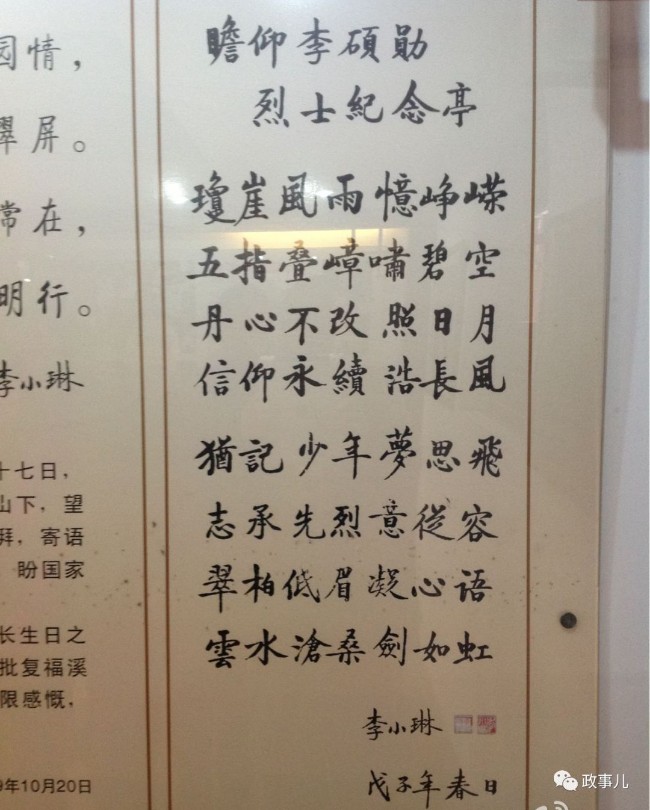 园情，
翠屏。
常在，
明行。
李小琳
十七日，
山下，望
湃，寄语
盼国家
长生日之
批复福溪
限感慨，
9年10月20日
瞻仰李碩勛
烈士紀念亭
瓊崖風雨憶崢嶸
五指叠嶂嘯碧空
丹心不改照日月
信仰永續浩長風
猶記少年夢思飛
志承先烈意從容
翠柏低眉凝心语
雲水滄桑劍如虹
李小琳
戊子年春日
政事儿